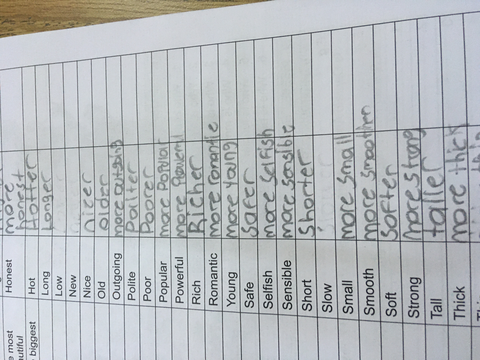 e most
autiful
Honest more
honest
e biggest
Hot Hotter
Long Longer
Low
New
Nice nicer
Old older
Outgoing more outgoing
Polite
Poor Poorer
Popular more Popular
Powerful more Powerful
Rich Richer
Romantic more romantic
Young more young
Safe safer
Selfish more selfish
Sensible more sensible
Short shorter
Slow
Small more small
Smooth more smoothen
Soft softer
Strong more strong
Tall taller
Thick more thick